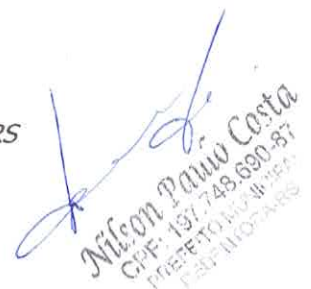 RS
Nilson Paulo Costa
CPF: 197.748.690-87
PREFEITO MUNICIPAL
REDENTORA-RS